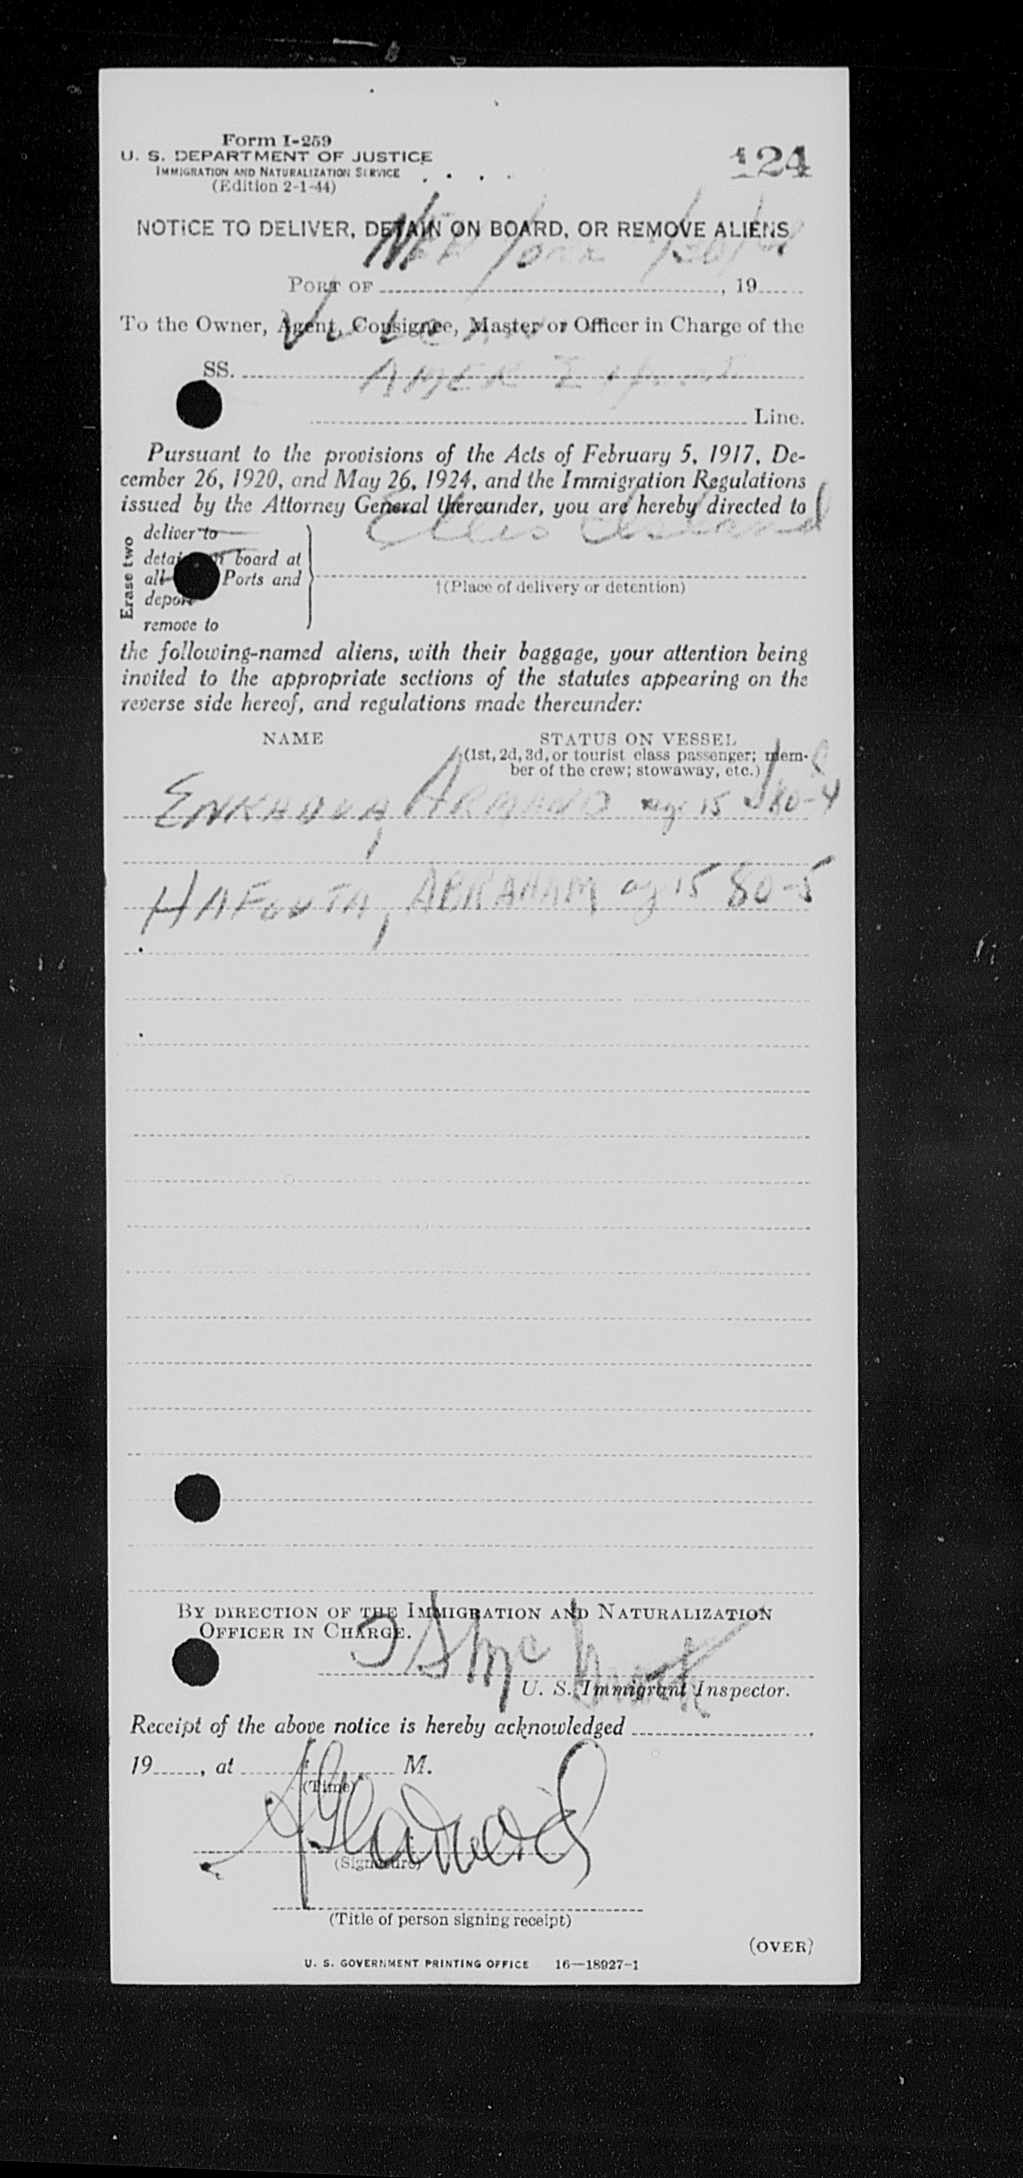 Form I-259
U. S. DEPARTMENT OF JUSTICE
IMMIGRATION AND NATURALIZATION SERVICE
(Edition 2-1-44)
124
NOTICE TO DELIVER, DETAIN ON BOARD, OR REMOVE ALIENS
New York
PORT OF , 19
To the Owner, Agent, Consignee, Master or Officer in Charge of the
Vulcan
SS.
AMER Export
Line.
Pursuant to the provisions of the Acts of February 5, 1917, De-
cember 26, 1920, and May 26, 1924, and the Immigration Regulations
issued by the Attorney General thereunder, you are hereby directed to
Ellis Island
Erase two
deliver to
detain on board at
all Ports and
deport
remove to
†(Place of delivery or detention)
the following-named aliens, with their baggage, your attention being
invited to the appropriate sections of the statutes appearing on the
reverse side hereof, and regulations made thereunder:
NAME STATUS ON VESSEL
(1st, 2d, 3d, or tourist class passenger; mem-
ber of the crew; stowaway, etc.)
ARMAND age 15 80-4
HAFOUTA, ABRAHAM ag 15 80-5
BY DIRECTION OF THE IMMIGRATION AND NATURALIZATION
OFFICER IN CHARGE.
U. S. Immigrant Inspector.
Receipt of the above notice is hereby acknowledged
19 , at M.
(Time)
(Signature)
(Title of person signing receipt)
(OVER)
U. S. GOVERNMENT PRINTING OFFICE 16—18927-1